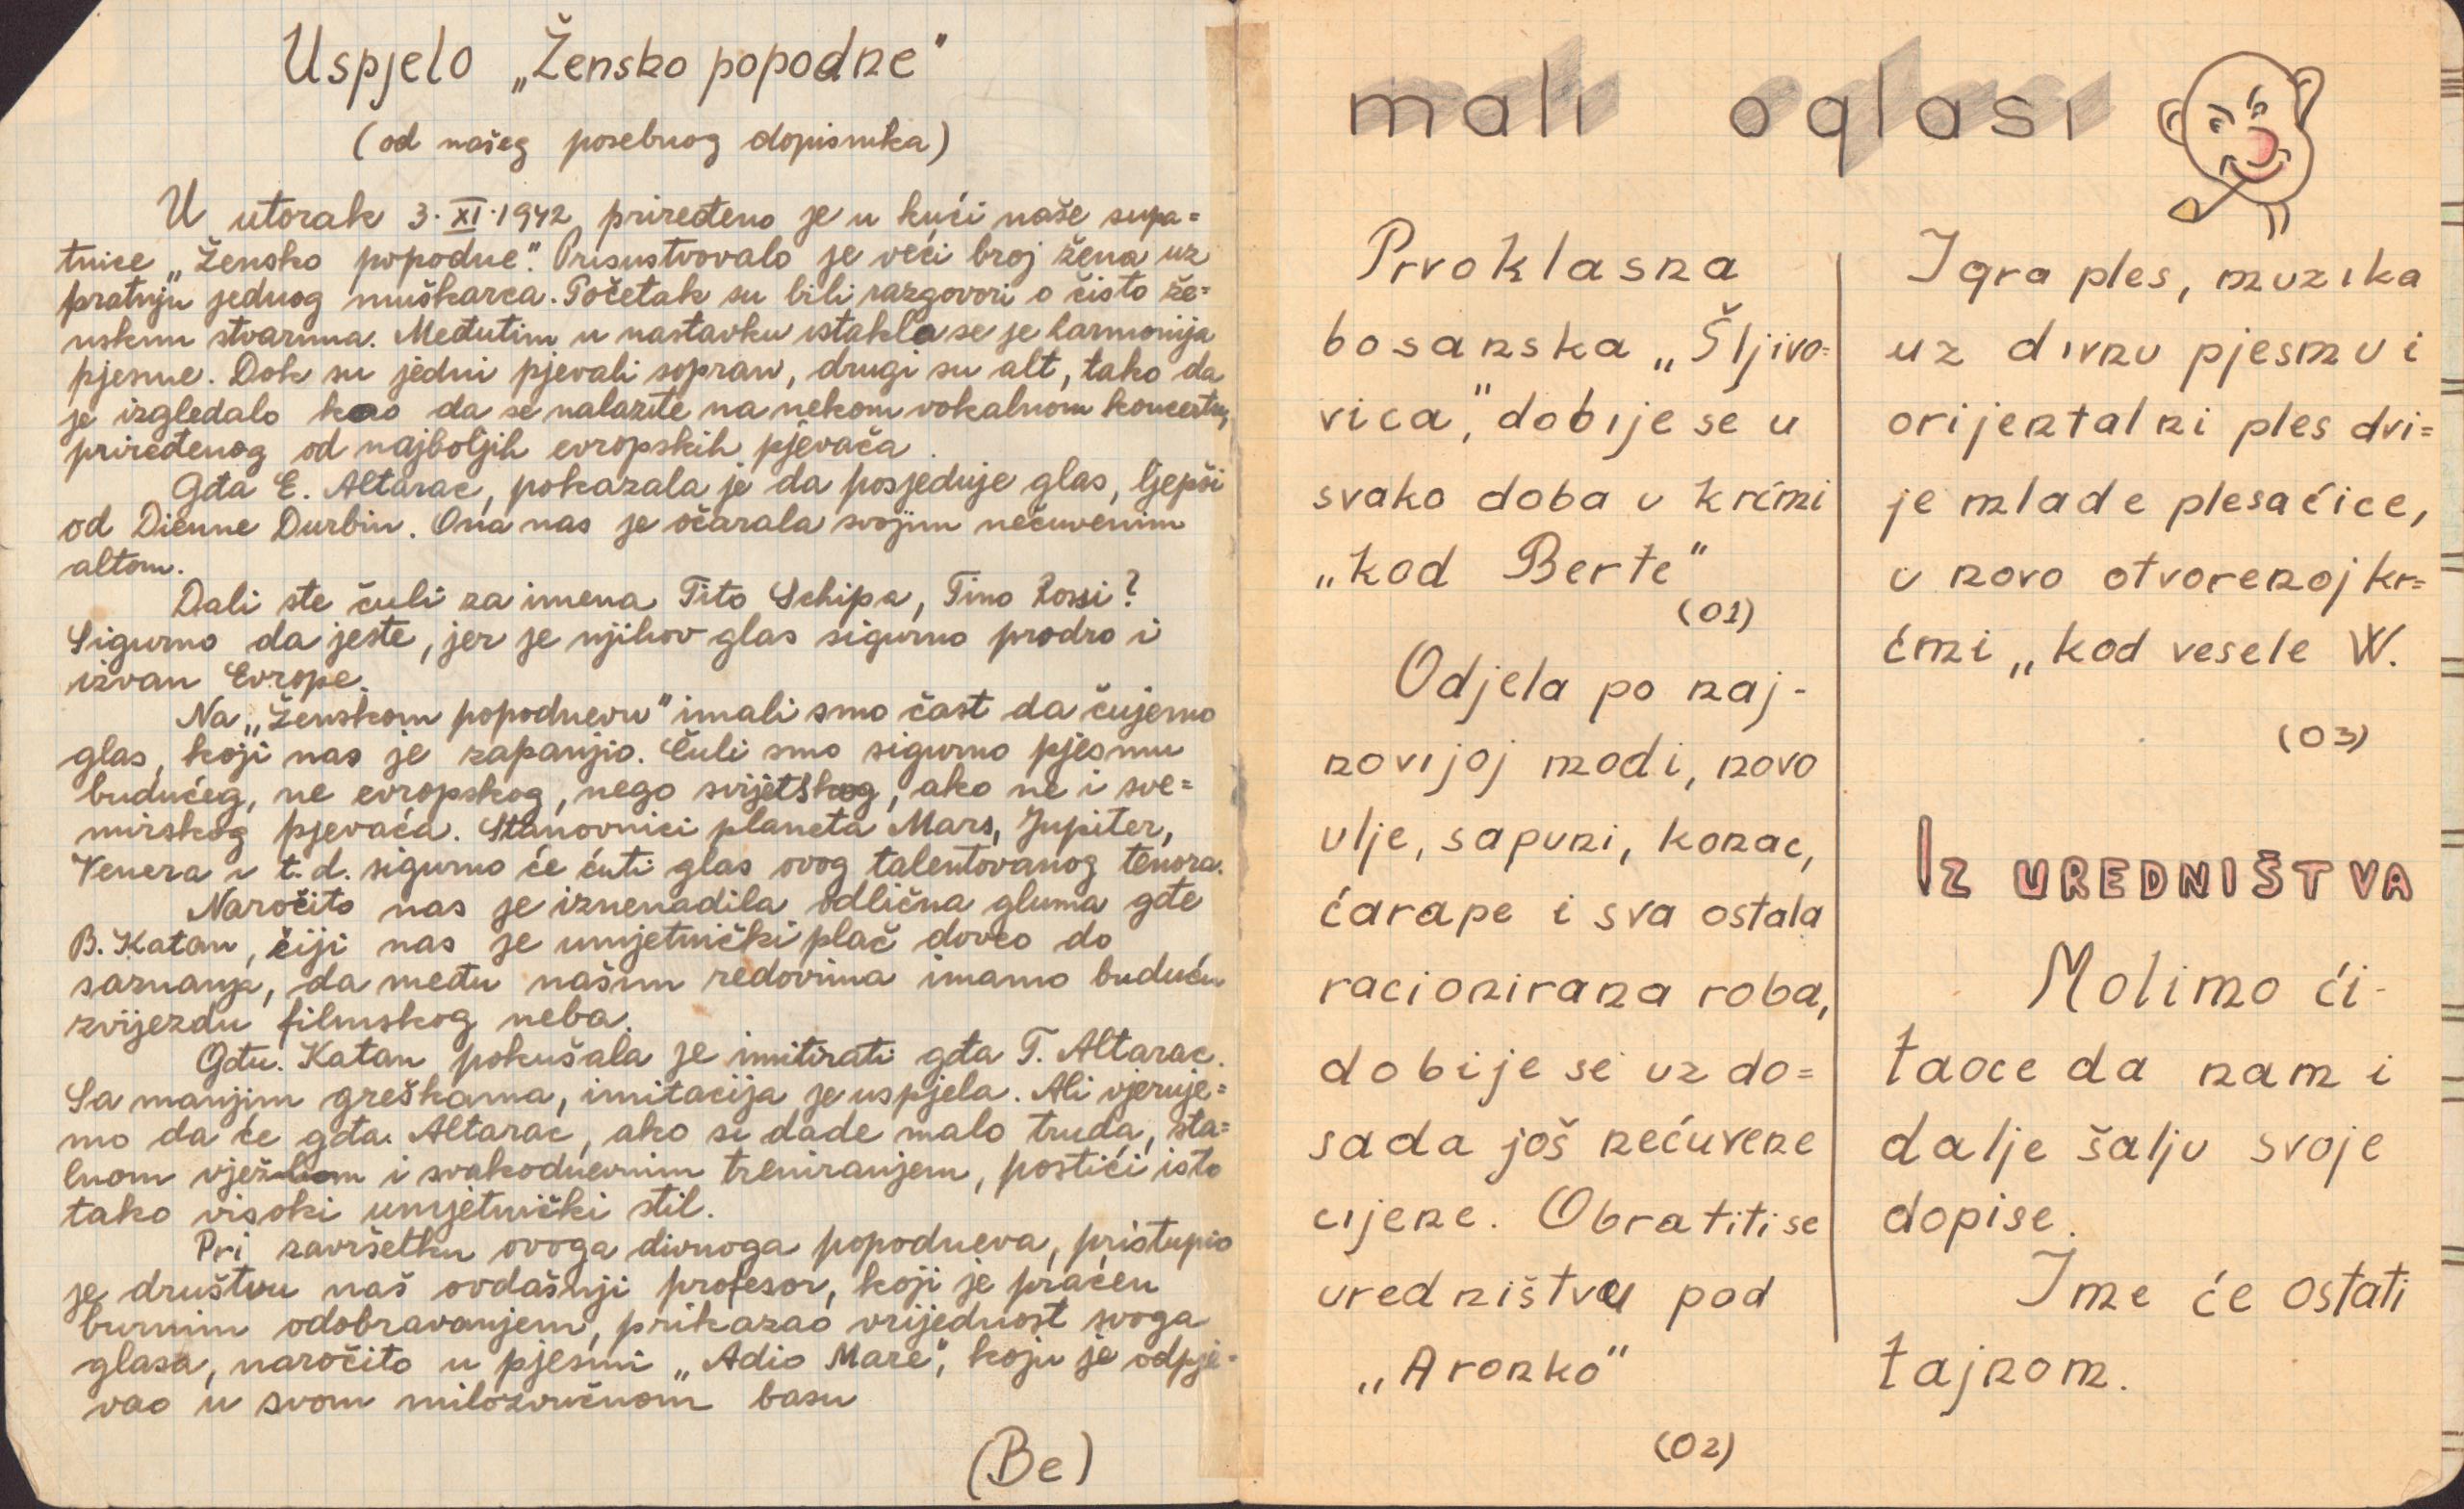 Uspjelo „Žensko popodne"
(od našeg posebnog dopisnika)
U utorak 3.XI.1942 priređeno je u kući naše supa=
tnice „Žensko popodne". Prisustvovalo je veći broj žena uz
pratnju jednog muškarca. Početak su bili razgovori o čisto že=
nskim stvarima. Međutim u nastavku istakla se je harmonija
pjesme. Dok su jedni pjevali sopran, drugi su alt, tako da
je izgledalo kao da se nalazite na nekom vokalnom koncertu,
priređenog od najboljih evropskih pjevača.
Gđa E. Altarac, pokazala je da posjeduje glas, ljepši
od Dienne Durbin. Ona nas je očarala svojim nečuvenim
altom.
Dali ste čuli za imena Tito Schipa, Tino Rossi?
Sigurno da jeste, jer je njihov glas sigurno prodro i
izvan Evrope.
Na „Ženskom popodnevu" imali smo čast da čujemo
glas, koji nas je zapanjio. Čuli smo sigurno pjesmu
budućeg, ne evropskog, nego svijetskog, ako ne i sve=
mirskog pjevaća. Stanovnici planeta Mars, Jupiter,
Venera i t.d. sigurno će ćuti glas ovog talentovanog tenora.
Naročito nas je iznenadila odlična gluma gđe
B. Katan, čiji nas je umjetnički plač doveo do
saznanja, da među našim redovima imamo buduću
zvijezdu filmskog neba.
Gđu. Katan pokušala je imitirati gđa T. Altarac.
Sa manjim greškama, imitacija je uspjela. Ali vjeruje=
mo da će gđa. Altarac, ako si dade malo truda, sta=
lnom vježbom i svakodnevnim treniranjem, postići isto
tako visoki umjetnički stil.
Pri završetku ovoga divnoga popodneva, pristupio
je društvu naš ovdašnji profesor, koji je praćen
burnim odobravanjem, prikazao vrijednost svoga
glasa, naročito u pjesmi „Adio Mare", koju je odpje-
vao u svom milozvučnom basu
(Be)
mali oglasi
Prvoklasna
bosanska „Šljivo=
vica", dobije se u
svako doba u krćmi
„kod Berte"
(01)
Odjela po naj-
novijoj modi, novo
ulje, sapuni, konac,
ćarape i sva ostala
racionirana roba,
dobije se uz do=
sada još nećuvene
cijene. Obratiti se
uredništvu pod
„Aronko"
(02)
Igra ples, muzika
uz divnu pjesmu i
orijentalni ples dvi=
je mlade plesaćice,
u novo otvorenoj kr=
ćmi „kod vesele W.
(03)
IZ UREDNIŠTVA
Molimo ći-
taoce da nam i
dalje šalju svoje
dopise.
Ime će ostati
tajnom.